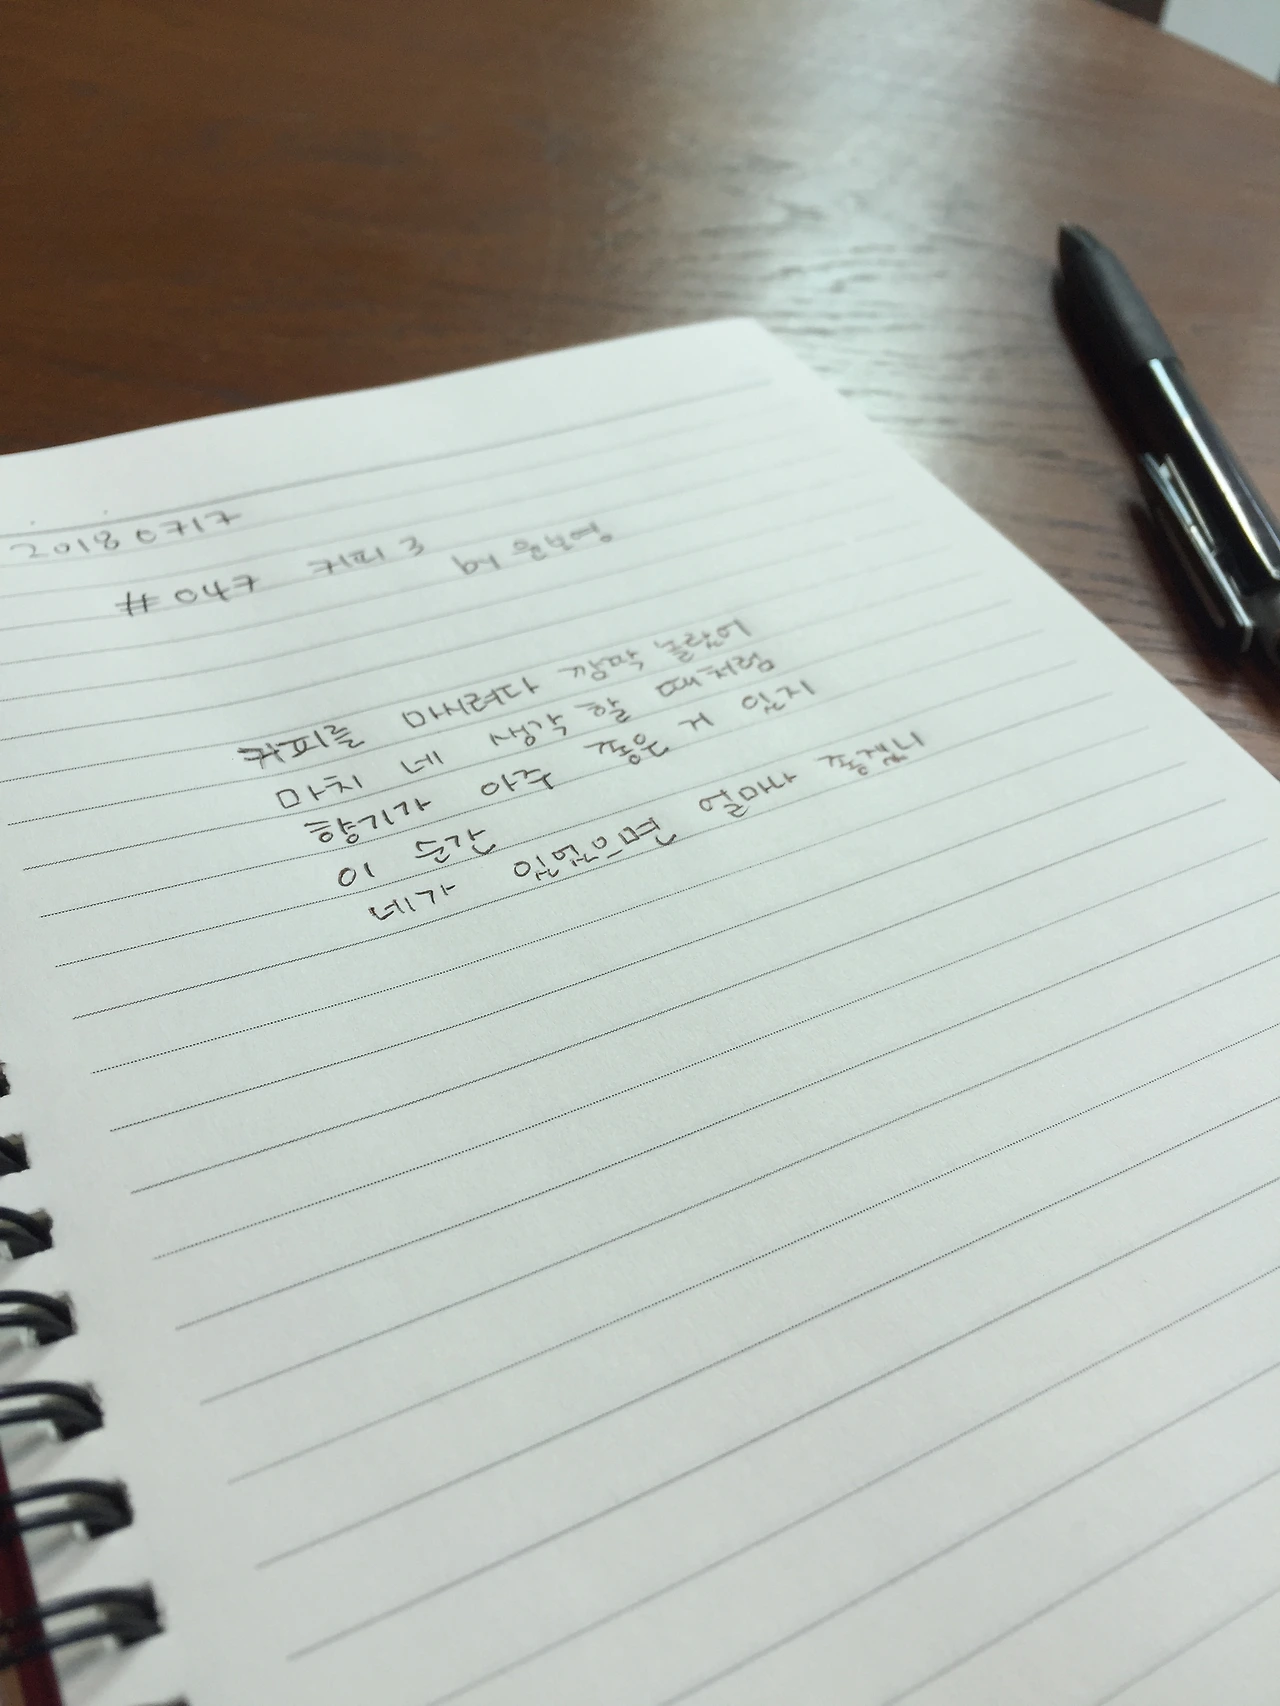 20180717
#047 커피 3 by 윤보영
커피를 마시려다 깜짝 놀랐어
마치 네 생각 할 때처럼
향기가 아주 좋은 거 있지
이 순간
네가 있었으면 얼마나 좋겠니